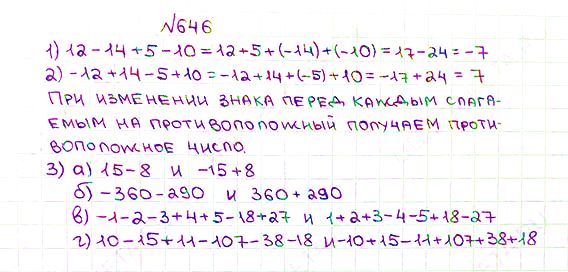 №646
1) 12-14+5-10=12+5+(-14)+(-10)=17-24=-7
2) -12+14-5+10=-12+14+(-5)+10=-17+24=7
ПРИ ИЗМЕНЕНИИ ЗНАКА ПЕРЕД КАЖДЫМ СЛАГА-
ЕМЫМ НА ПРОТИВОПОЛОЖНЫЙ ПОЛУЧАЕМ ПРОТИ-
ВОПОЛОЖНОЕ ЧИСЛО.
3) а) 15-8 и -15+8
б) -360-290 и 360+290
в) -1-2-3+4+5-18+27 и 1+2+3-4-5+18-27
г) 10-15+11-107-38-18 и -10+15-11+107+38+18